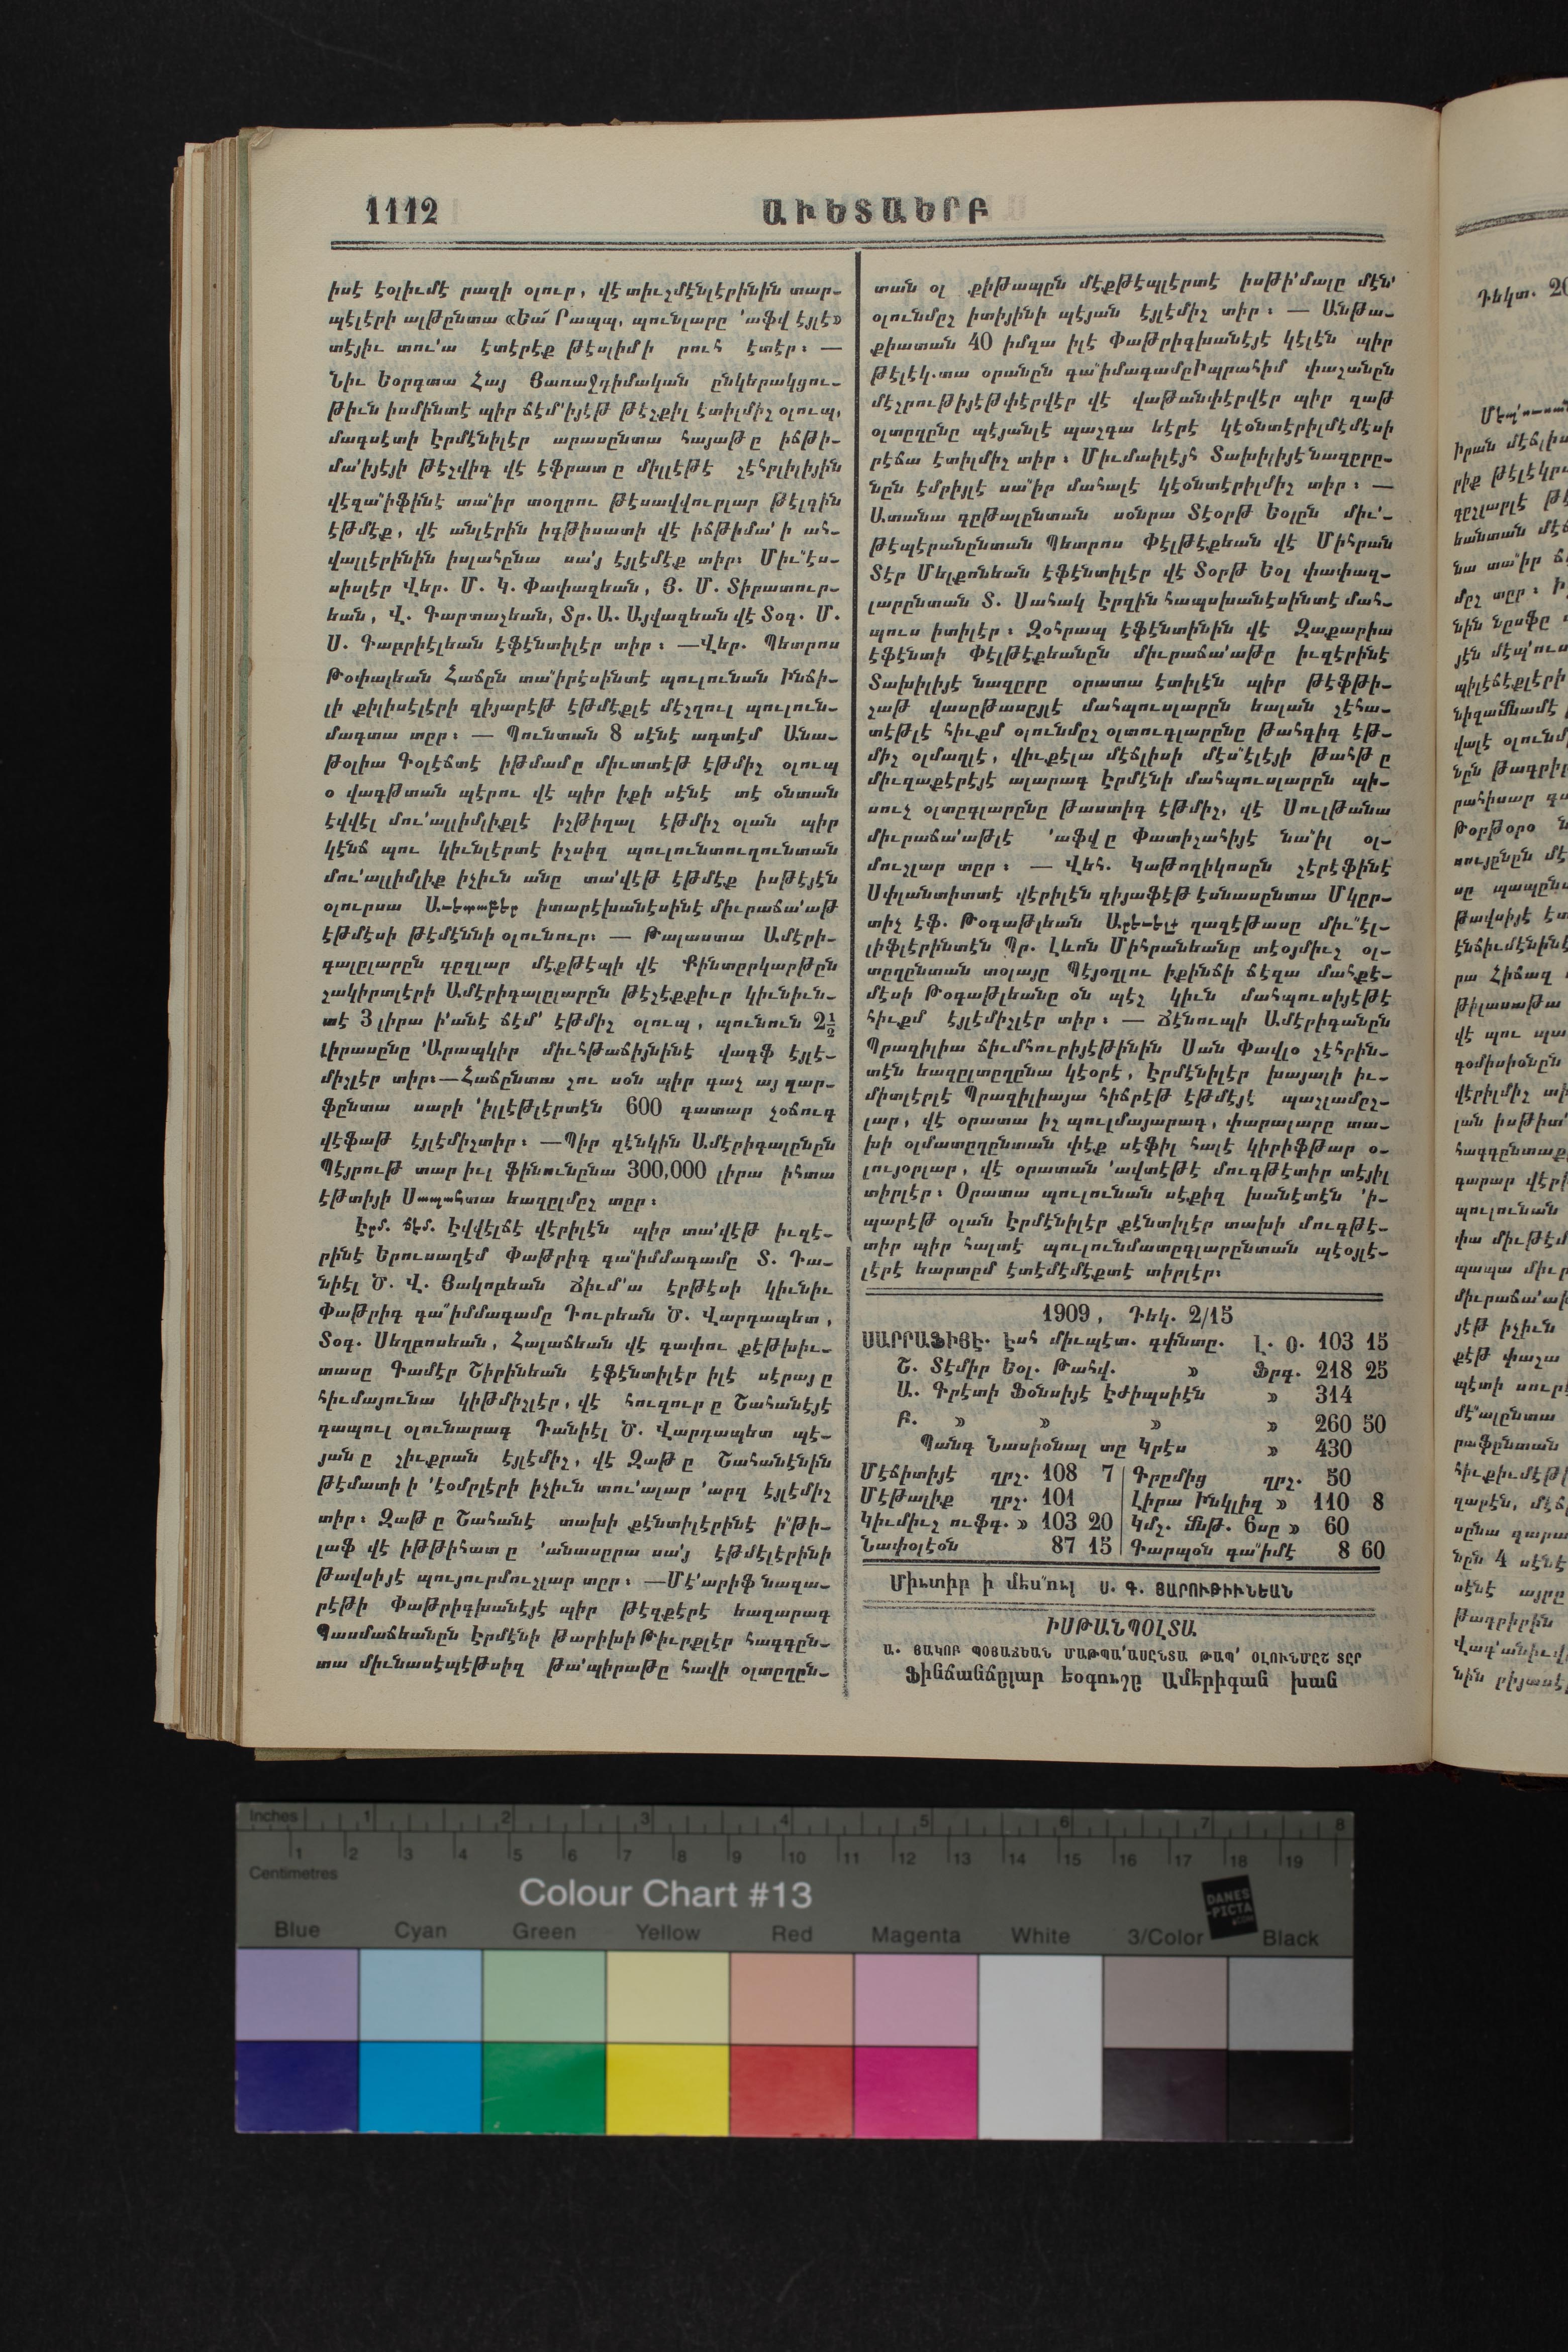 1112
ԱՒԵՏԱԲԵՐ
իսէ էօլիւմէ րազի օլուր, վէ տիւշմէնլէրինին տար-
պէլէրի ալթընտա «Եա՜ Րապպ, պունլարը ՚աֆվ էյլէ»
տէյիւ տու՚ա էտէրէք թէսլիմ ի րուհ էտէր։ —
Նիւ Եօրգտա Հայ Յառաջդիմական ընկերակցու-
թիւն իսմինտէ պիր ճէմ՚իյէթ թէշքիլ էտիլմիշ օլուպ,
մագսէտի Էրմէնիլէր արասընտա հայաթ ը իճթի-
մա՚իյէյի թէշվիգ վէ էֆրատ ը միլլէթէ շէհրլիլիյին
վէզա՟իֆինէ տա՟իր տօղրու թէսավվուրլար թէլգին
էթմէք, վէ անլէրին իգթիսատի վէ իճթիմա՚ի ահ-
վալլէրինին իսլահընա սա՚յ էյլէմէք տիր։ Միւ՟էս-
սիսլէր Վեր. Մ. Կ. Փափազեան, Յ. Մ. Տիրատուր-
եան, Վ. Գարտաշեան, Տր. Ա. Այվազեան վէ Տօգ. Մ.
Ս. Գաբրիէլեան էֆէնտիլէր տիր։ —Վեր. Պետրոս
Թօփալեան Հաճըն տա՟իրէսինտէ պուլունան Ինճի-
լի քիլիսէլէրի զիյարէթ էթմէքլէ մէշղուլ պուլուն-
մագտա տըր։ — Պունտան 8 սէնէ ագտէմ Անա-
թօլիա Գօլէճտէ իթմամ ը միւտտէթ էթմիշ օլուպ
օ վագթտան պէրու վէ պիր իքի սէնէ տէ օնտան
էվվէլ մու՚ալլիմլիքլէ իշթիղալ էթմիշ օլան պիր
կէնճ պու կիւնլէրտէ իշսիզ պուլունտուղունտան
մու՚ալլիմլիք իչիւն անը տա՚վէթ էթմէք իսթէյէն
օլուրսա Աւետաբեր իտարէխանէսինէ միւրաճա՚աթ
էթմէսի թէմէննի օլունուր։ — Թալաստա Ամէրի-
գալըլարըն գըզլար մէքթէպի վէ Քինտըրկարթըն
շակիրտլէրի Ամէրիգալըլարըն թէշէքքիւր կիւնիւն-
տէ 3 լիրա ի՚անէ ճէմ՚ էթմիշ օլուպ, պունուն 2½
լիրասընը ՚Արապկիր միւհթաճիյնինէ վագֆ էյլէ-
միշլէր տիր։—Հաճընտա շու սօն պիր գաչ այ զար-
ֆընտա սարի ՚իլլէթլէրտէն 600 գատար չօճուգ
վէֆաթ էյլէմիշտիր։ —Պիր զէնկին Ամէրիգալընըն
Պէյրութ տար իւլ ֆինունընա 300,000 լիրա իհտա
էթտիյի Սապահտա եազըլմըշ տըր։
Էրմ. ճեմ. Էվվէլճէ վէրիլէն պիր տա՚վէթ իւզէ-
րինէ Երուսաղէմ Փաթրիգ գա՟իմմագամը Տ. Դա-
նիէլ Ծ. Վ. Յակոբեան Ճիւմ՚ա էրթէսի կիւնիւ
Փաթրիգ գա՟իմմագամը Դուրեան Ծ. Վարդապետ,
Տօգ. Սեղբոսեան, Հալաճեան վէ գափու քէթխիւ-
տասը Գամէր Շիրինեան էֆէնտիլէր իլէ սէրայ ը
հիւմայունա կիթմիշլէր, վէ հուզուր ը Շահանէյէ
գապուլ օլունարագ Դանիէլ Ծ. Վարդապետ պէ-
յան ը շիւքրան էյլէմիշ, վէ Զաթ ը Շահանէնին
թէմատի ի ՚էօմրլէրի իչիւն տու՚ալար ՚արզ էյլէմիշ
տիր։ Զաթ ը Շահանէ տախի քէնտիլէրինէ ի՟թի-
լաֆ վէ իթթիհատ ը ՚անասըրա սա՚յ էթմէլէրինի
թավսիյէ պույուրմուշլար տըր։ —Մէ՚արիֆ նազա-
րէթի Փաթրիգխանէյէ պիր թէզքէրէ եազարագ
Պասմաճեանըն Էրմէնի թարիխի Թիւրքլէր հագգըն-
տա միւնասէպէթսիզ թա՚պիրաթը հավի օլտըղըն-
տան օլ քիթապըն մէքթէպլէրտէ իսթի՚մալը մէն՚
օլունմըշ իտիյինի պէյան էյլէմիշ տիր։ — Անթա-
քիատան 40 իմզա իլէ Փաթրիգխանէյէ կէլէն պիր
թէլէկ.տա օրանըն գա՟իմագամը Իպրահիմ փաշանըն
մէշրութիյէթփէրվէր վէ վաթանփէրվէր պիր զաթ
օլտըղընը պէյանլէ պաշգա եէրէ կէօնտէրիլմէմէսի
րէճա էտիլմիշ տիր։ Միւմաիլէյհ Տախիլիյէ նազըրը-
նըն էմրիյլէ սա՟իր մահալէ կէօնտէրիլմիշ տիր։ —
Ատանա գըթալընտան սօնրա Տէօրթ Եօլըն միւ՚-
թէպէրանընտան Պետրոս Փէլթէքեան վէ Միհրան
Տէր Մելքոնեան էֆէնտիլէր վէ Տօրթ Եօլ փափազ-
լարընտան Տ. Սահակ Էրզին հապսխանէսինտէ մահ-
պուս իտիլէր։ Զօհրապ էֆէնտինին վէ Զաքարիա
էֆէնտի Փէլթէքեանըն միւրաճա՚աթը իւզէրինէ
Տախիլիյէ նազըրը օրատա էտիլէն պիր թէֆթի-
շաթ վասըթասըյլէ մահպուսլարըն եալան շէհա-
տէթլէ հիւքմ օլունմըշ օլտուգլարընը թահգիգ էթ-
միշ օլմաղլէ, վիւքէլա մէճլիսի մէս՟էլէյի թահթ ը
միւզաքէրէյէ ալարագ Էրմէնի մահպուսլարըն պի-
սուչ օլտըգլարընը թաստիգ էթմիշ, վէ Սուլթանա
միւրաճա՚աթլէ ՚աֆվ ը Փատիշահիյէ նա՟իլ օլ-
մուշլար տըր։ — Վեհ. Կաթողիկոսըն շէրէֆինէ
Սփլանտիտտէ վէրիլէն զիյաֆէթ էսնասընտա Մկըր-
տիչ էֆ. Թօգաթլեան Արեւելք ղազէթասը միւ՟էլ-
լիֆլէրինտէն Պր. Լևոն Միհրանեանը տէօյմիւշ օլ-
տըղընտան տօլայը Պէյօղլու իքինճի ճէզա մահքէ-
մէսի Թօգաթլեանը օն պէշ կիւն մահպուսիյէթէ
հիւքմ էյլէմիշլէր տիր։ — Ճէնուպի Ամէրիգանըն
Պրազիլիա ճիւմհուրիյէթինին Սան Փավլօ շէհրին-
տէն եազըլտըղընա կէօրէ, Էրմէնիլէր խայալի իւ-
միտլէրլէ Պրազիլիայա հիճրէթ էթմէյէ պաշլամըշ-
լար, վէ օրատա իշ պուլմայարագ, փարալարը տա-
խի օլմատըղընտան փէք սէֆիլ հալէ կիրիֆթար օ-
լույօրլար, վէ օրատան ՚ավտէթէ մուգթէտիր տէյիլ
տիրլէր։ Օրատա պուլունան սէքիզ խանէտէն ՚ի-
պարէթ օլան Էրմէնիլէր քէնտիլէր տախի մուգթէ-
տիր պիր հալտէ պուլունմատըգլարընտան պէօյլէ-
լէրէ եարտըմ էտէմէմէքտէ տիրլէր։
1909, Դեկ. 2/15
ՍԱՐՐԱՖԻՅԷ. Էսհ միւպէտ. գօինտը. Լ. Օ. 103 15
Շ. Տէմիր Եօլ. Թահվ. » Ֆրգ. 218 25
Ա. Գրէտի Ֆօնսիյէ Էժիպսիէն » 314
Բ. » » » » 260 50
Պանգ Նասիօնալ տը Կրէս » 430
Մէճիտիյէ ղրշ. 108 7 Գրըմից ղրշ. 50
Մէթալիք ղրշ. 101 Լիրա Ինկլիզ » 110 8
Կիւմիւշ ուֆգ. » 103 20 Կմշ. մնթ. 6սը » 60
Նափօլէօն 87 15 Գարպօն գա՟իմէ 8 60
Միւտիր ի մես՟ուլ Ս. Գ. ՅԱՐՈՒԹԻՒՆԵԱՆ
ԻՍԹԱՆՊՕԼՏԱ
Ա. ՅԱԿՈԲ ՊՕՅԱՃԵԱՆ ՄԱԹՊԱ՚ԱՍԸՆՏԱ ԹԱՊ՚ ՕԼՈՒՆՄԸՇ ՏԸՐ
Ֆինճանճըլար եօգուշը Ամերիգան խան
Inches 1 2 3 4 5 6 7 8
1 2 3 4 5 6 7 8 9 10 11 12 13 14 15 16 17 18 19
Centimetres
Colour Chart #13
DANES
-PICTA
.COM
Blue Cyan Green Yellow Red Magenta White 3/Color Black